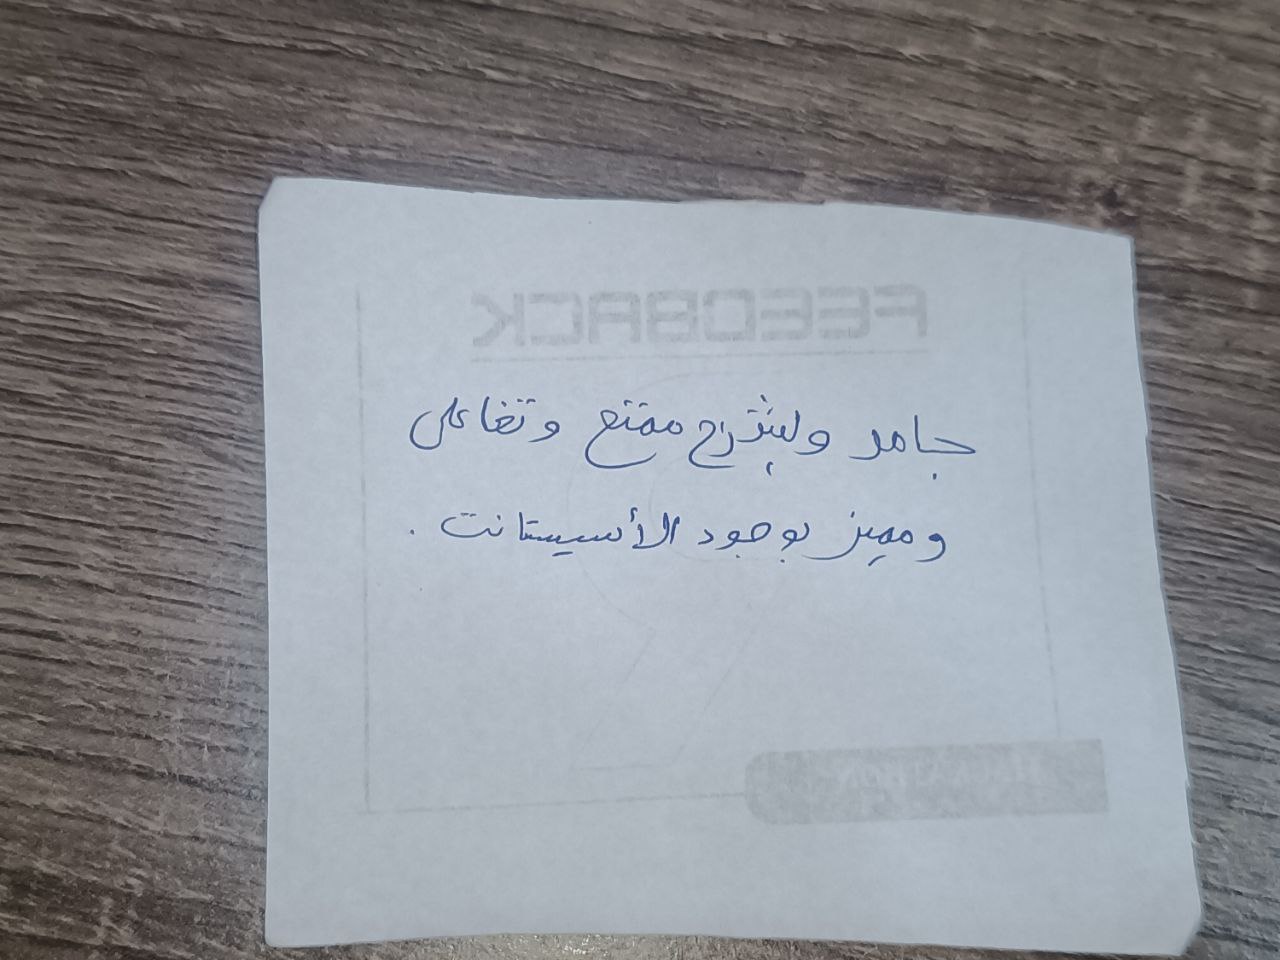 FEEDBACK
جامد وبيشرح ممتع وتفاعلى
ومميز بوجود الأسيستانت .